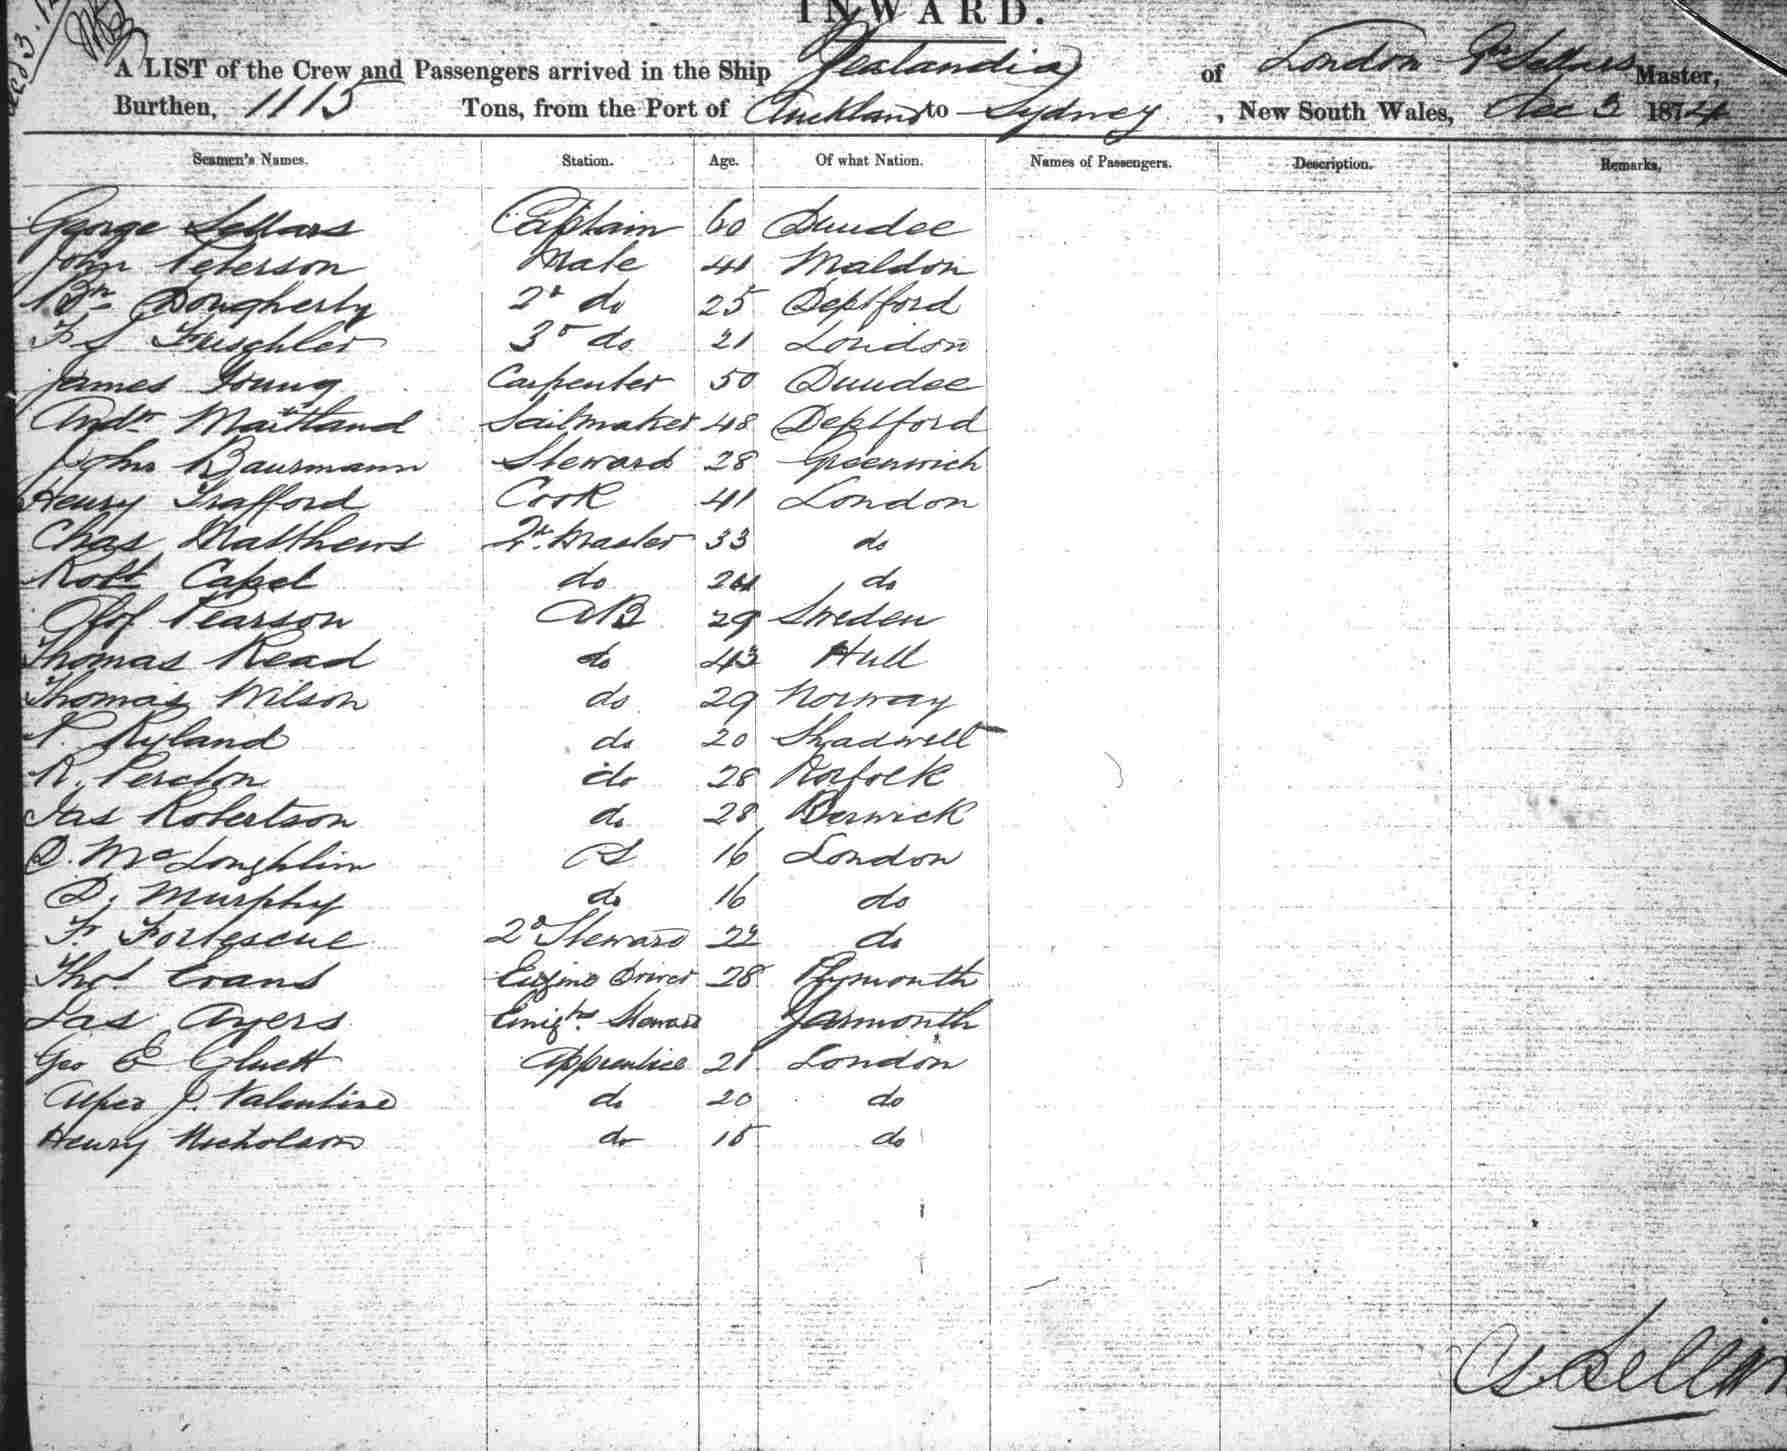 INWARD.
A LIST of the Crew and Passengers arrived in the Ship Zealandia of London G Sellars Master,
Burthen, 1115 Tons, from the Port of Auckland to Sydney, New South Wales, Dec 3 1874
Seamen's Names. Station. Age. Of what Nation. Names of Passengers. Description. Remarks.
George Sellars Captain 60 Dundee
John Peterson Mate 41 Maldon
Dougherty 2d do 25 Deptford
F J 3d do 21 London
James Young Carpenter 50 Dundee
Andw Maitland Sailmaker 48 Deptford
John Baurmann Steward 28 Greenwich
Henry Trafford Cook 41 London
Chas Matthews Qr. Master 33 do
Robt Capel do do
Olof Pearson AB 29 Sweden
Thomas Read do 43 Hull
Thomas Wilson do 29 Norway
Ryland do 20 Shadwell
R. do 28 Norfolk
Jas Robertson do 28 Berwick
D. McLoughlin OS 16 London
D. Murphy do 16 do
F. Fortescue 2d Steward 22 do
Thos Evans Engine Driver 28 Plymouth
Jas Ayers Emigts Steward Yarmouth
Geo E Cluett Apprentice 21 London
Alfred J. Valentine do 20 do
Henry Nicholson do 15 do
G Sellars